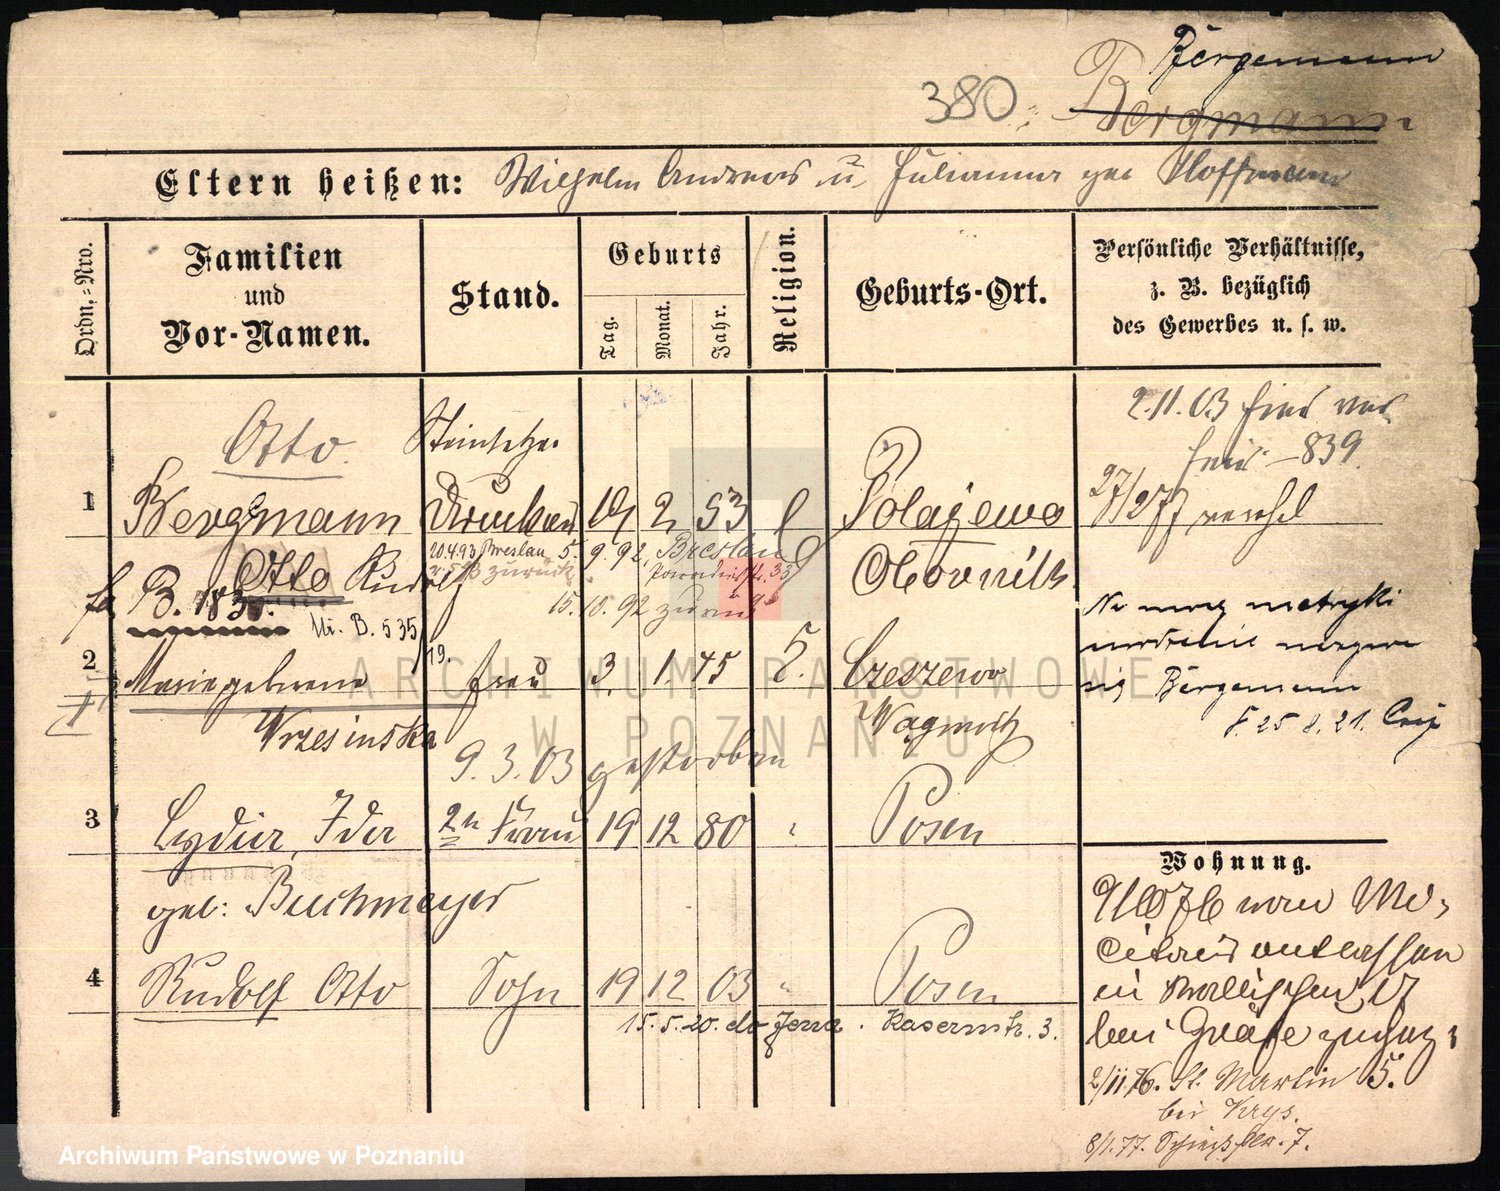 Bergemann
380 Bergmann
Eltern heißen: Wilhelm Andreas u Julianna geb Hoffmann
Ordn.-Nro.
Familien
und
Vor-Namen.
Stand.
Geburts
Tag.
Monat.
Jahr.
Religion.
Geburts-Ort.
Persönliche Verhältnisse,
z. B. bezüglich
des Gewerbes u. s. w.
Otto
Steinsetzer
2.11.03
839
1 Bergmann 19 2 53 Polajewo
Otto Rudolf
20.4.93 Breslau 5. 9. 92. Breslau
zurück
Obornik
15. 10. 92 zurück
B. 183
U. B. 535/19.
2 Marie geborene Frau 3. 1. 45 Czeszewo
Wrzesinska
Wagrowitz
Na mocy metryki
nazwisko
się Bergemann
25 8. 21.
9. 3. 03 gestorben
3 Lydia, Ida 2te Frau 19 12 80 Posen
geb: Buchmeyer
4 Rudolf Otto Sohn 19 12 03 " Posen
15. 5. 20. do Jerra. Kasernstr. 3.
Wohnung.
9/10 76 vom Mi-
litair entlassen
in Wallischei 17
bei Gräfe
2/11.76. St. Martin 5.
bei Krys.
8/1.77. Schießstr. 7.
ARCHIWUM PAŃSTWOWE
W POZNANIU
Archiwum Państwowe w Poznaniu